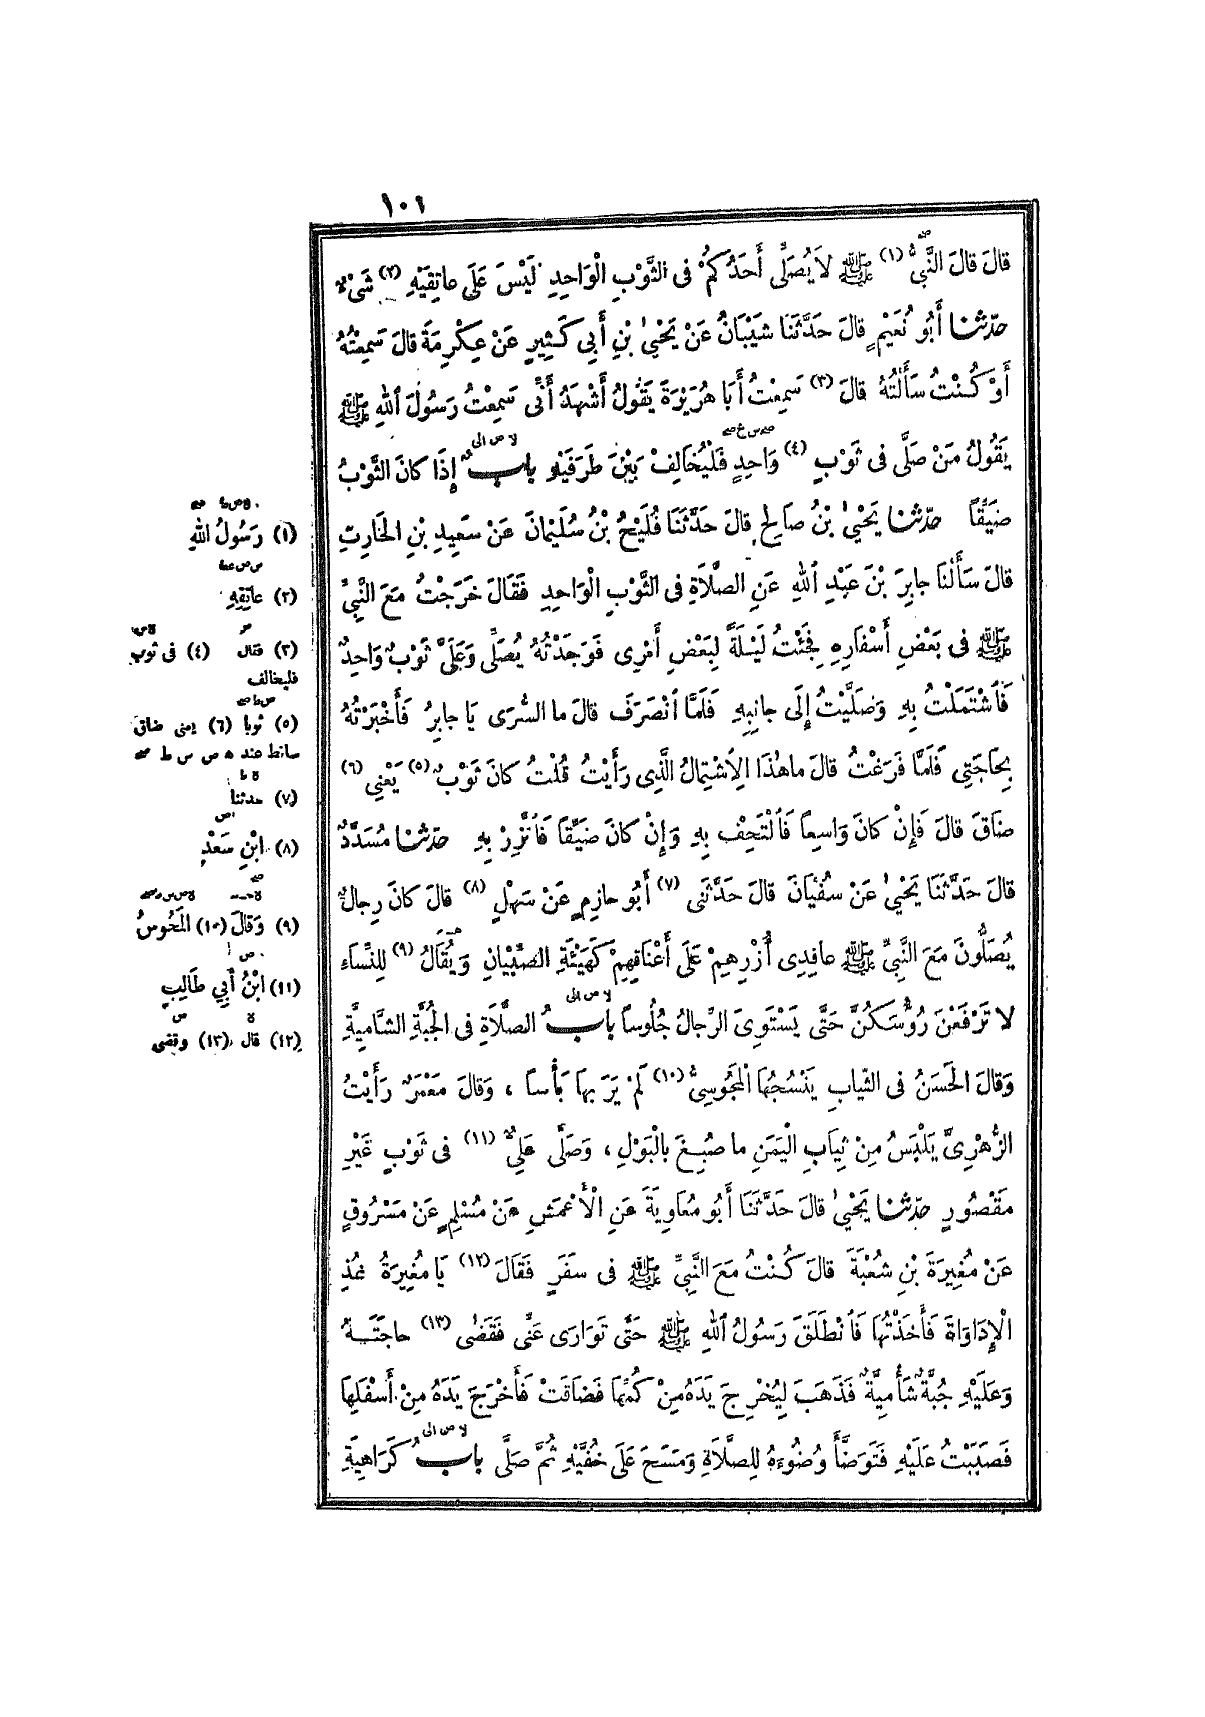 ١٠١
قَالَ قَالَ النَّبِيُّ (١) ﷺ لَا يُصَلِّي أَحَدُكُمْ فِي الثَّوْبِ الْوَاحِدِ لَيْسَ عَلَى عَاتِقَيْهِ (٢) شَيْءٌ
حدثنا أَبُو نُعَيْمٍ قَالَ حَدَّثَنَا شَيْبَانُ عَنْ يَحْيَى بْنِ أَبِي كَثِيرٍ عَنْ عِكْرِمَةَ قَالَ سَمِعْتُهُ
أَوْ كُنْتُ سَأَلْتُهُ قَالَ (٣) سَمِعْتُ أَبَا هُرَيْرَةَ يَقُولُ أَشْهَدُ أَنِّي سَمِعْتُ رَسُولَ اللهِ ﷺ
يَقُولُ مَنْ صَلَّى فِي ثَوْبٍ (٤) وَاحِدٍ فَلْيُخَالِفْ بَيْنَ طَرَفَيْهِ بَابٌ إِذَا كَانَ الثَّوْبُ
ضَيِّقًا حدثنا يَحْيَى بْنُ صَالِحٍ قَالَ حَدَّثَنَا فُلَيْحُ بْنُ سُلَيْمَانَ عَنْ سَعِيدِ بْنِ الْحَارِثِ
قَالَ سَأَلْنَا جَابِرَ بْنَ عَبْدِ اللهِ عَنِ الصَّلَاةِ فِي الثَّوْبِ الْوَاحِدِ فَقَالَ خَرَجْتُ مَعَ النَّبِيِّ
ﷺ فِي بَعْضِ أَسْفَارِهِ فَجِئْتُ لَيْلَةً لِبَعْضِ أَمْرِي فَوَجَدْتُهُ يُصَلِّي وَعَلَيَّ ثَوْبٌ وَاحِدٌ
فَاشْتَمَلْتُ بِهِ وَصَلَّيْتُ إِلَى جَانِبِهِ فَلَمَّا انْصَرَفَ قَالَ مَا السُّرَى يَا جَابِرُ فَأَخْبَرْتُهُ
بِحَاجَتِي فَلَمَّا فَرَغْتُ قَالَ مَا هٰذَا الِاشْتِمَالُ الَّذِي رَأَيْتُ قُلْتُ كَانَ ثَوْبٌ (٥) يَعْنِي (٦)
ضَاقَ قَالَ فَإِنْ كَانَ وَاسِعًا فَالْتَحِفْ بِهِ وَإِنْ كَانَ ضَيِّقًا فَاتَّزِرْ بِهِ حدثنا مُسَدَّدٌ
قَالَ حَدَّثَنَا يَحْيَى عَنْ سُفْيَانَ قَالَ حَدَّثَنِي (٧) أَبُو حَازِمٍ عَنْ سَهْلٍ (٨) قَالَ كَانَ رِجَالٌ
يُصَلُّونَ مَعَ النَّبِيِّ ﷺ عَاقِدِي أُزْرِهِمْ عَلَى أَعْنَاقِهِمْ كَهَيْئَةِ الصِّبْيَانِ وَيُقَالُ (٩) لِلنِّسَاءِ
لَا تَرْفَعْنَ رُؤُسَكُنَّ حَتَّى يَسْتَوِيَ الرِّجَالُ جُلُوسًا بَابُ الصَّلَاةِ فِي الْجُبَّةِ الشَّامِيَّةِ
وَقَالَ الْحَسَنُ فِي الثِّيَابِ يَنْسُجُهَا الْمَجُوسِيُّ (١٠) لَمْ يَرَ بِهَا بَأْسًا ، وَقَالَ مَعْمَرٌ رَأَيْتُ
الزُّهْرِيَّ يَلْبَسُ مِنْ ثِيَابِ الْيَمَنِ مَا صُبِغَ بِالْبَوْلِ ، وَصَلَّى عَلِيٌّ (١١) فِي ثَوْبٍ غَيْرِ
مَقْصُورٍ حدثنا يَحْيَى قَالَ حَدَّثَنَا أَبُو مُعَاوِيَةَ عَنِ الْأَعْمَشِ عَنْ مُسْلِمٍ عَنْ مَسْرُوقٍ
عَنْ مُغِيرَةَ بْنِ شُعْبَةَ قَالَ كُنْتُ مَعَ النَّبِيِّ ﷺ فِي سَفَرٍ فَقَالَ (١٢) يَا مُغِيرَةُ خُذِ
الْإِدَاوَةَ فَأَخَذْتُهَا فَانْطَلَقَ رَسُولُ اللهِ ﷺ حَتَّى تَوَارَى عَنِّي فَقَضَى (١٣) حَاجَتَهُ
وَعَلَيْهِ جُبَّةٌ شَأْمِيَّةٌ فَذَهَبَ لِيُخْرِجَ يَدَهُ مِنْ كُمِّهَا فَضَاقَتْ فَأَخْرَجَ يَدَهُ مِنْ أَسْفَلِهَا
فَصَبَبْتُ عَلَيْهِ فَتَوَضَّأَ وُضُوءَهُ لِلصَّلَاةِ وَمَسَحَ عَلَى خُفَّيْهِ ثُمَّ صَلَّى بَابُ كَرَاهِيَةِ
(١) رَسُولُ اللهِ
(٢) عَاتِقِهِ
(٣) فقال (٤) فى ثوب
فليخالف
(٥) ثوبا (٦) يعنى ضاق
ساقط عند ه ص س ط
(٧) حدثنا
(٨) ابْنِ سَعْدٍ
(٩) وَقَالَ (١٠) الْمَجُوسُ
(١١) ابْنُ أَبِي طَالِبٍ
(١٢) قال (١٣) وقضى